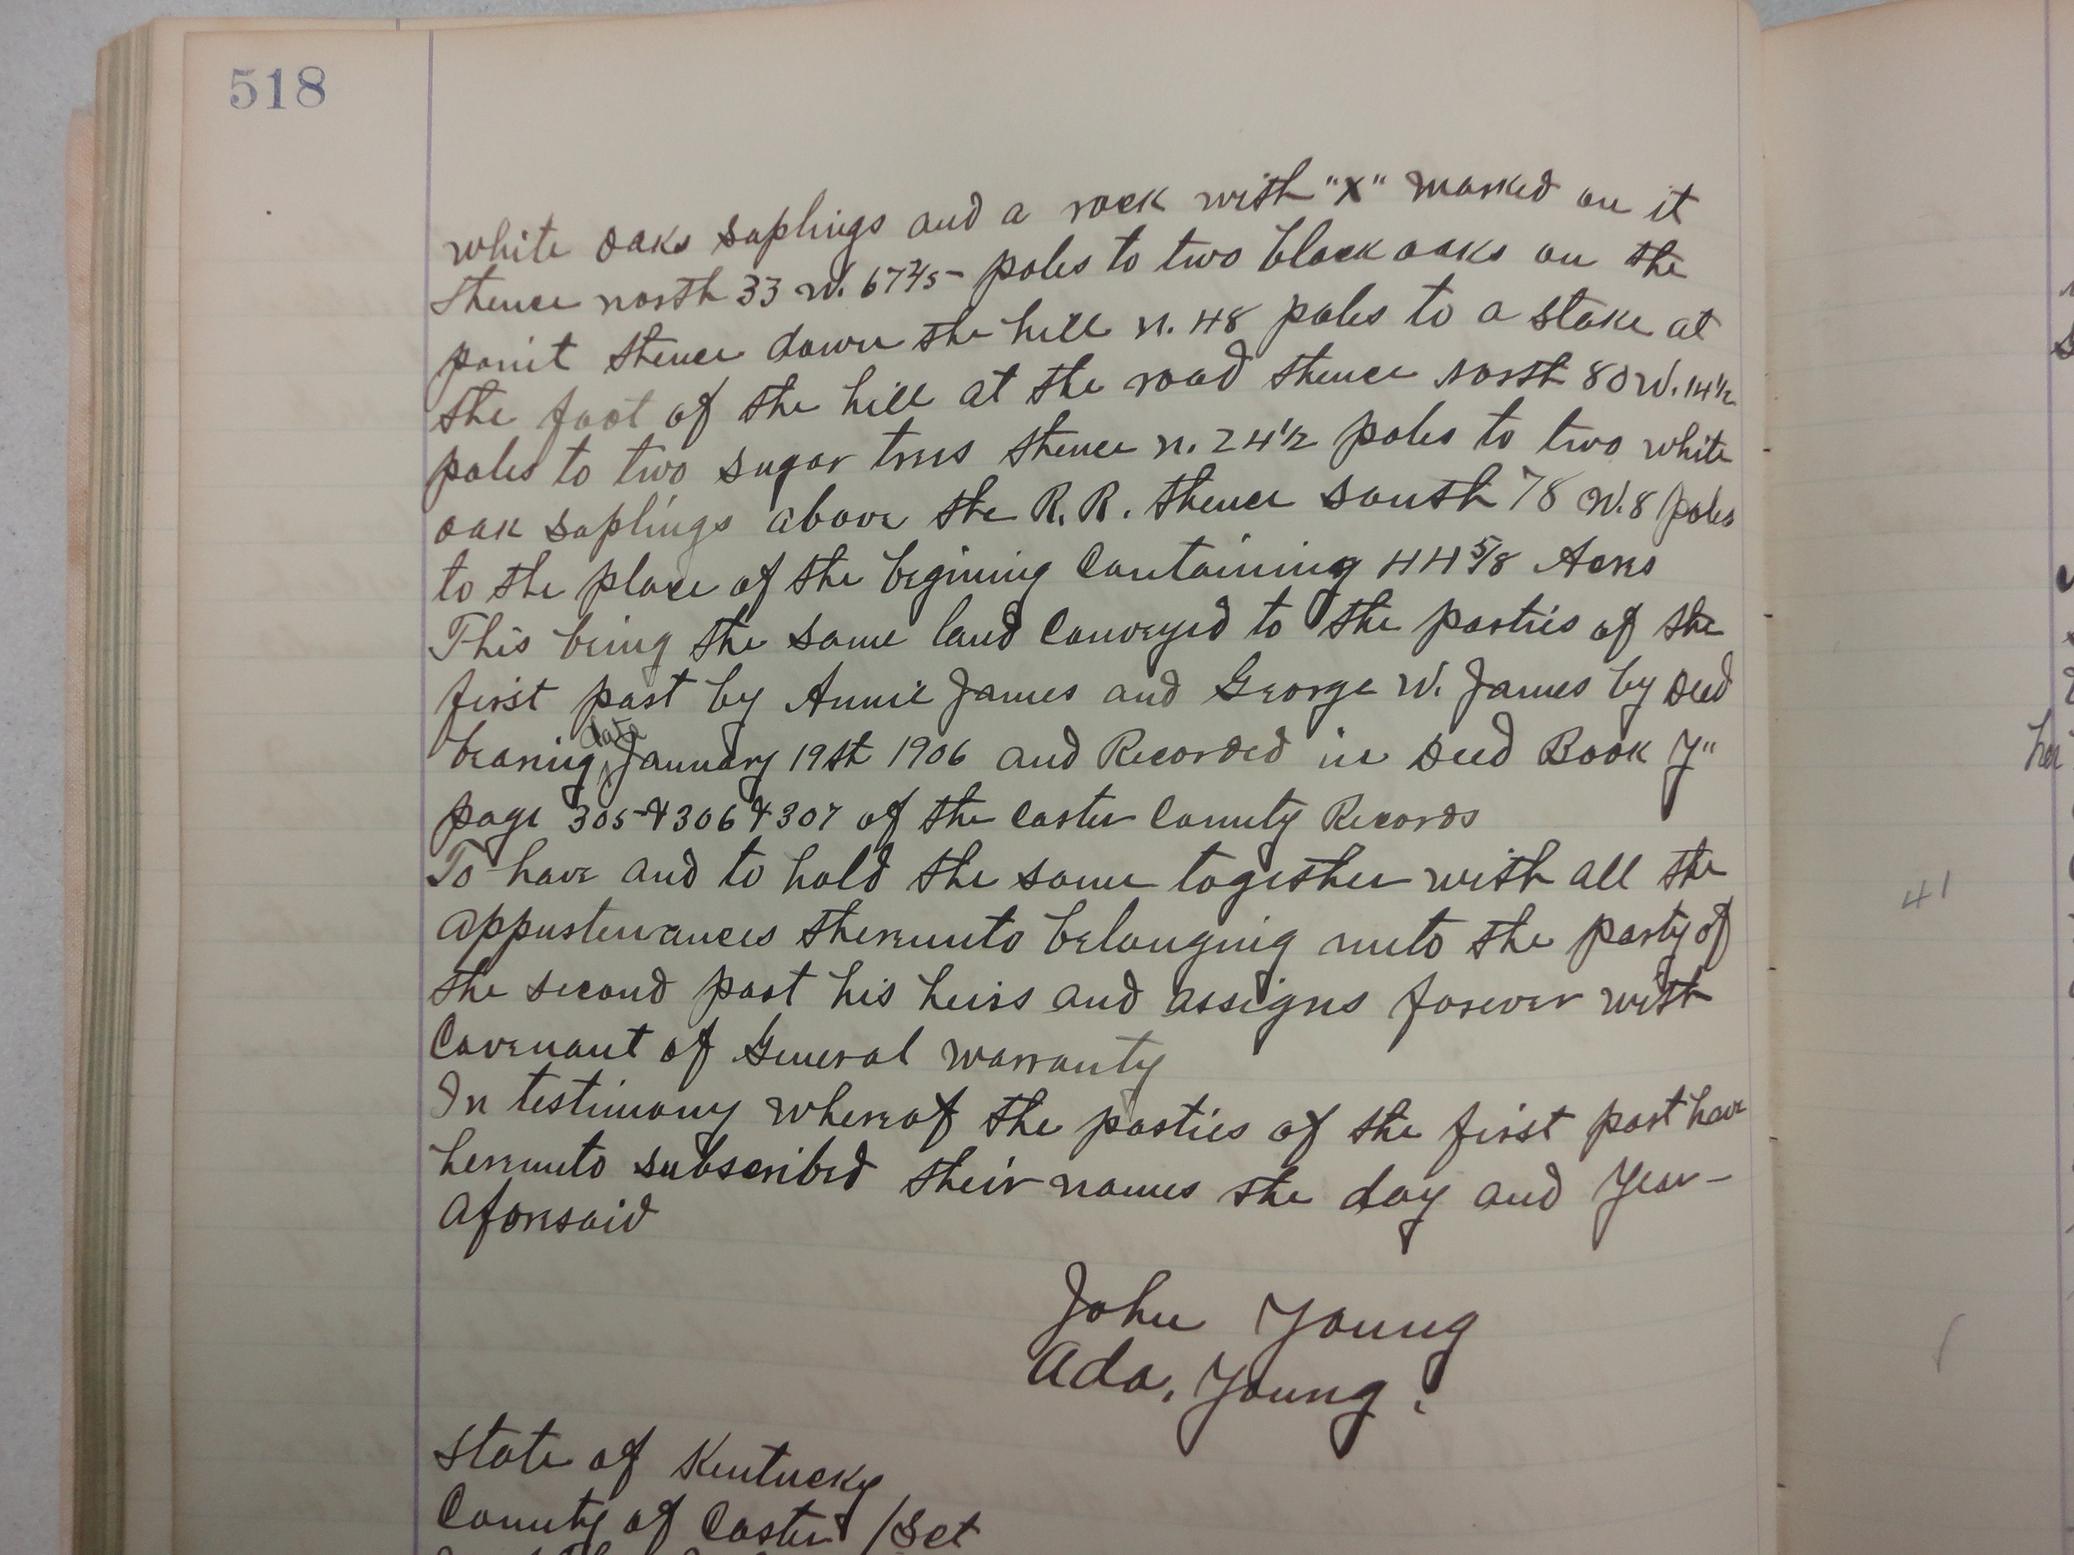 518
white oaks saplings and a rock with "X" marked on it
thence north 33 W. 67 2/5 poles to two black oaks on the
point thence down the hill n. 48 poles to a stake at
the foot of the hill at the road thence north 80 W. 14 1/2
poles to two sugar trees thence n. 24 1/2 poles to two white
oak saplings above the R. R. thence south 78 W. 8 poles
to the place of the begining Containing 44 5/8 Acres
This being the same land Conveyed to the parties of the
first part by Annie James and George W. James by Deed
bearing date January 19th 1906 and Recorded in Deed Book Y"
page 305 & 306 & 307 of the Carter County Records
To have and to hold the same together with all the
appurtenances thereunto belonging unto the party of
the second part his heirs and assigns forever with
Covenant of General Warranty
In testimony whereof the parties of the first part have
hereunto subscribed their names the day and Year
aforesaid
John Young
Ada, Young.
State of Kentucky
County of Carter / Sct
41
her